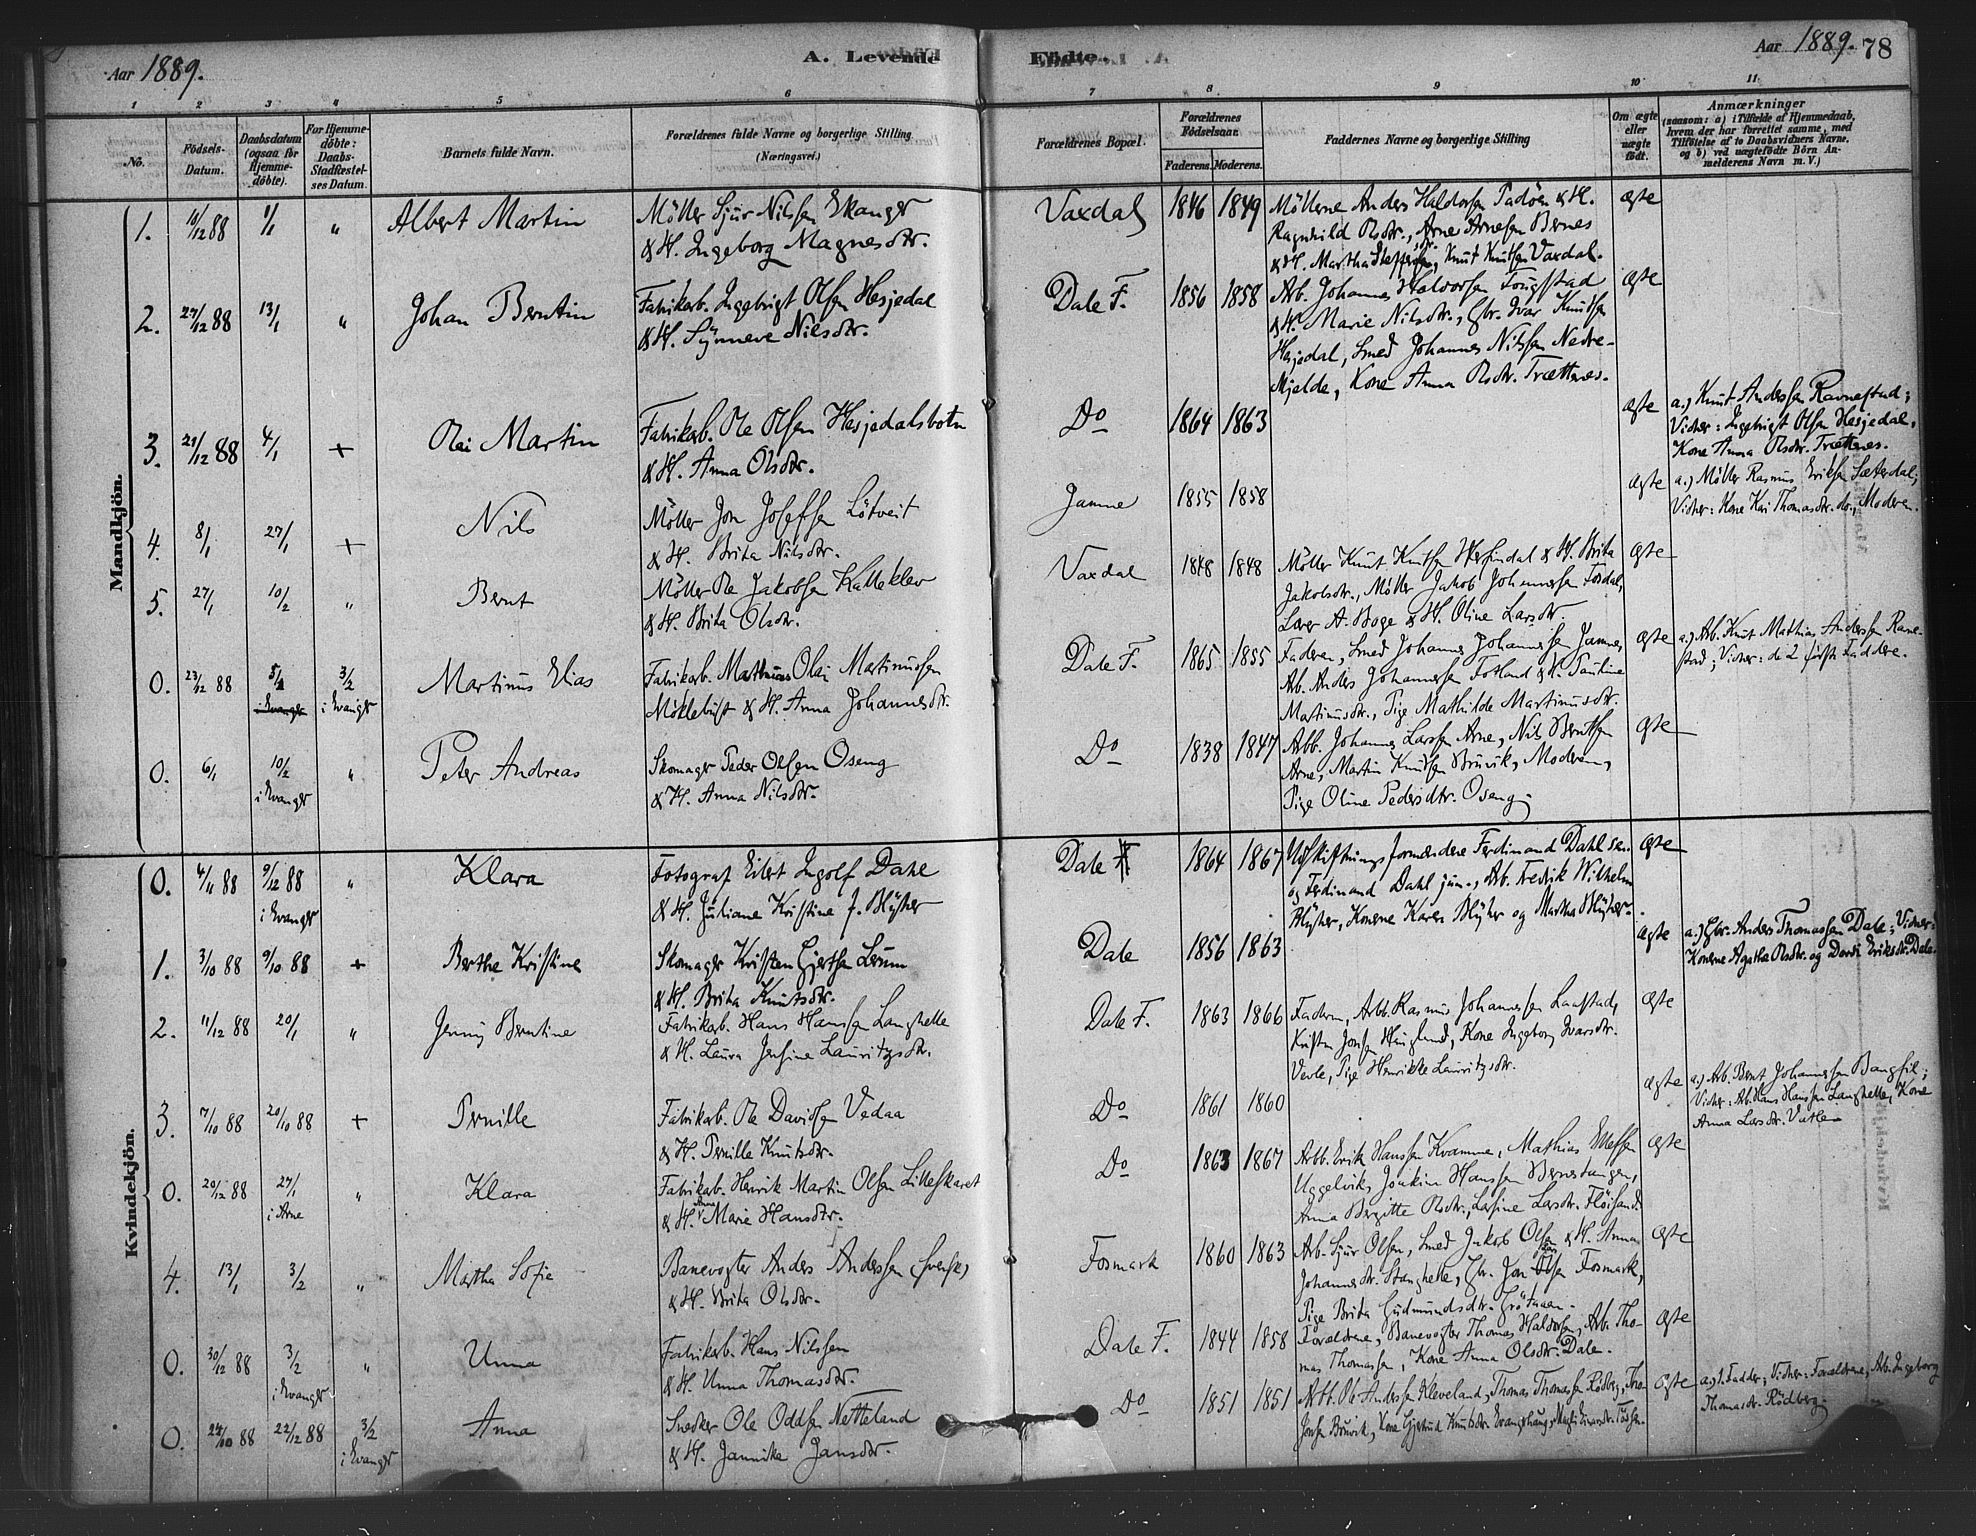 Aar 1889.
A. Levende
Födte.
Aar 1889. 78
1 2 3 4 5 6 7 8 9 10 11
No.
Födsels-
Datum.
Daabsdatum
(ogsaa for
Hjemme-
döbte).
For Hjemme-
döbte:
Daabs-
Stadfæstel-
ses Datum.
Barnets fulde Navn.
Forældrenes fulde Navne og borgerlige Stilling
(Næringsvei.)
Forældrenes Bopæl.
Forældrenes
Födselsaar.
Faderens. Moderens.
Faddernes Navne og borgerlige Stilling
Om ægte
eller
uægte
födt.
Anmærkninger
(saasom: a) i Tilfælde af Hjemmedaab,
hvem der har forrettet samme, med
Tilföielse af to Daabsvidners Navne.
og b) ved uægtefödte Börn An-
melderens Navn m. V.)
Mandkjön.
1. 10/12 88 1/1 " Albert Martin
Möller Sjur Nilssen Ekanger
& H. Ingeborg Magnesdtr.
Vaxdal 1846 1849
Möllerne Anders Haldorsen Tadöen & H.
Ragnhild Olsdtr., Arne Arnesen Bernes
& H. Martha Steffensdtr., Knut Knutsen Vaxdal.
ægte
2. 27/12 88 13/1 " Johan Berntin
Fabrikarb. Ingebrigt Olsen Hesjedal
& H. Synneve Nilsdtr.
Dale F. 1856 1858
Arb. Johannes Haldorsen Fougstad
& H. Marie Nilsdtr., Gbr. Ivar Knutsen
Hesjedal, Smed Johannes Nilssen Nedre-
Mjelde, Kone Anna Olsdtr. Trættenes.
ægte
3. 21/12 88 4/1 + Olai Martin
Fabrikarb. Ole Olsen Hesjedalsbotn
& H. Anna Olsdtr.
Do 1864 1863
ægte
a.) Knut Anderssen Ravnestad;
Vidner: Ingebrigt Olsen Hesjedal,
Kone Anna Olsdtr. Trættenes.
4. 8/1 27/1 + Nils
Möller Jon Josefsen Lötveit
& H. Brita Nilsdtr.
Jamne 1855 1858
ægte
a.) Möller Rasmus Eriksen Sæterdal;
Vidner: Kone Kari Thomasdtr. do., Moderen.
5. 27/1 10/2 " Bernt
Möller Ole Jakobsen Kalleklev
& H. Brita Olsdtr.
Vaxdal 1848 1848
Möller Knut Knutsen Herfindal & H. Brita
Jakobsdtr., Möller Jakob Johannessen Fosdal,
Lærer A. Boge & H. Oline Larsdtr.
ægte
0. 23/12 88 5/1 i Evanger 3/2 i Evanger Martinus Elias
Fabrikarb. Mathias Olai Martinussen
Möklebust & H. Anna Johannesdtr.
Dale F. 1865 1855
Faderen, Smed Johannes Johannessen Jamne,
Arb. Anders Johannessen Fotland & H. Pauline
Martinusdtr., Pige Mathilde Martinusdtr.
ægte
a.) Arb. Knut Mathias Anderssen Ravne-
stad; Vidner: de 2 första Faddere.
0. 6/1 10/2 i Evanger " Peter Andreas
Skomager Peder Olsen Oseng
& H. Anna Nilsdtr.
Do 1838 1847
Arbb. Johannes Larssen Arne, Nils Berntsen
Arne, Martin Knutsen Bruvik, Moderen,
Pige Oline Pedersdtr. Oseng.
ægte
Kvindekjön.
0. 4/11 88 9/12 88 i Evanger " Klara
Fotograf Eilert Ingolf Dahl
& H. Juliane Kristine f. Blyher
Dale F. 1864 1867
Udskiftningsformændene Ferdinand Dahl sen.
og Ferdinand Dahl jun., Arb. Fredrik Wilhelm
Blyher, Konerne Karen Blyher og Martha Blyher.
ægte
1. 3/10 88 9/10 88 + Berthe Kristine
Skomager Kristen Gjertsen Lerum
& H. Brita Knutsdtr.
Dale 1856 1863
ægte
a.) Gbr. Anders Thomassen Dale; Vidner:
Konerne Agatha Olsdtr. og Dordi Eriksdtr. Dale.
2. 11/12 88 20/1 " Jenny Berntine
Fabrikarb. Hans Hanssen Langhelle
& H. Laura Jensine Lauritzsdtr.
Dale F. 1863 1866
Faderen, Arbb. Rasmus Johannessen Laastad,
Kristen Jonsen Haugland, Kone Ingeborg Ivarsdtr.
Vevle, Pige Henrikke Lauritzsdtr.
ægte
3. 7/10 88 20/10 88 + Pernille
Fabrikarb. Ole Davidsen Vedaa
& H. Pernille Knutsdtr.
Do 1861 1860
ægte
a.) Arb. Bernt Johannessen Bangfil;
Vidner: Arb. Hans Hanssen Langhelle, Kone
Anna Larsdtr. Vatle
0. 20/12 88 27/1 i Arne " Klara
Fabrikarb. Henrik Martin Olsen Litleskaret
& H. Anna Marie Hansdtr.
Do 1863 1867
Arbb. Erik Hanssen Kvamme, Mathias Ellefsen
Uggelvik, Joakim Hanssen Bernestangen,
Anna Bergitte Olsdtr., Larsine Larsdtr. Flöisand.
ægte
4. 13/1 3/2 " Martha Sofie
Banevogter Anders Anderssen (svensk)
& H. Brita Olsdtr.
Fosmark 1860 1863
Arb. Sjur Olsen, Smed Jakob Olsen & H. Anna
Johannesdtr. Stanghelle, Gbr. Jon Olsen Fosmark,
Pige Brita Gudmundsdtr.
ægte
0. 30/12 88 3/2 i Evanger " Unna
Fabrikarb. Hans Nilssen
& H. Unna Thomasdtr.
Dale F. 1844 1858
Forældrene, Banevogter Thomas Haldorsen, Arb. Tho-
mas Thomassen, Kone Anna Olsdtr. Dale.
ægte
0. 24/10 88 22/12 88 3/2 i Evanger Anna
Snedker Ole Oddsen Netteland
& H. Jannika Jansdtr.
Do 1851 1851
Arbb. Ole Anderssen Kleveland, Thomas Thomassen Rödberg,
Jonsen Bruvik, Kone Gjertrud Knutsdtr. Evangshaug,
ægte
a.) 1. Fadder; Vidner: Forældrene, Arb. Ingeborg
Thomasdtr. Rödberg.